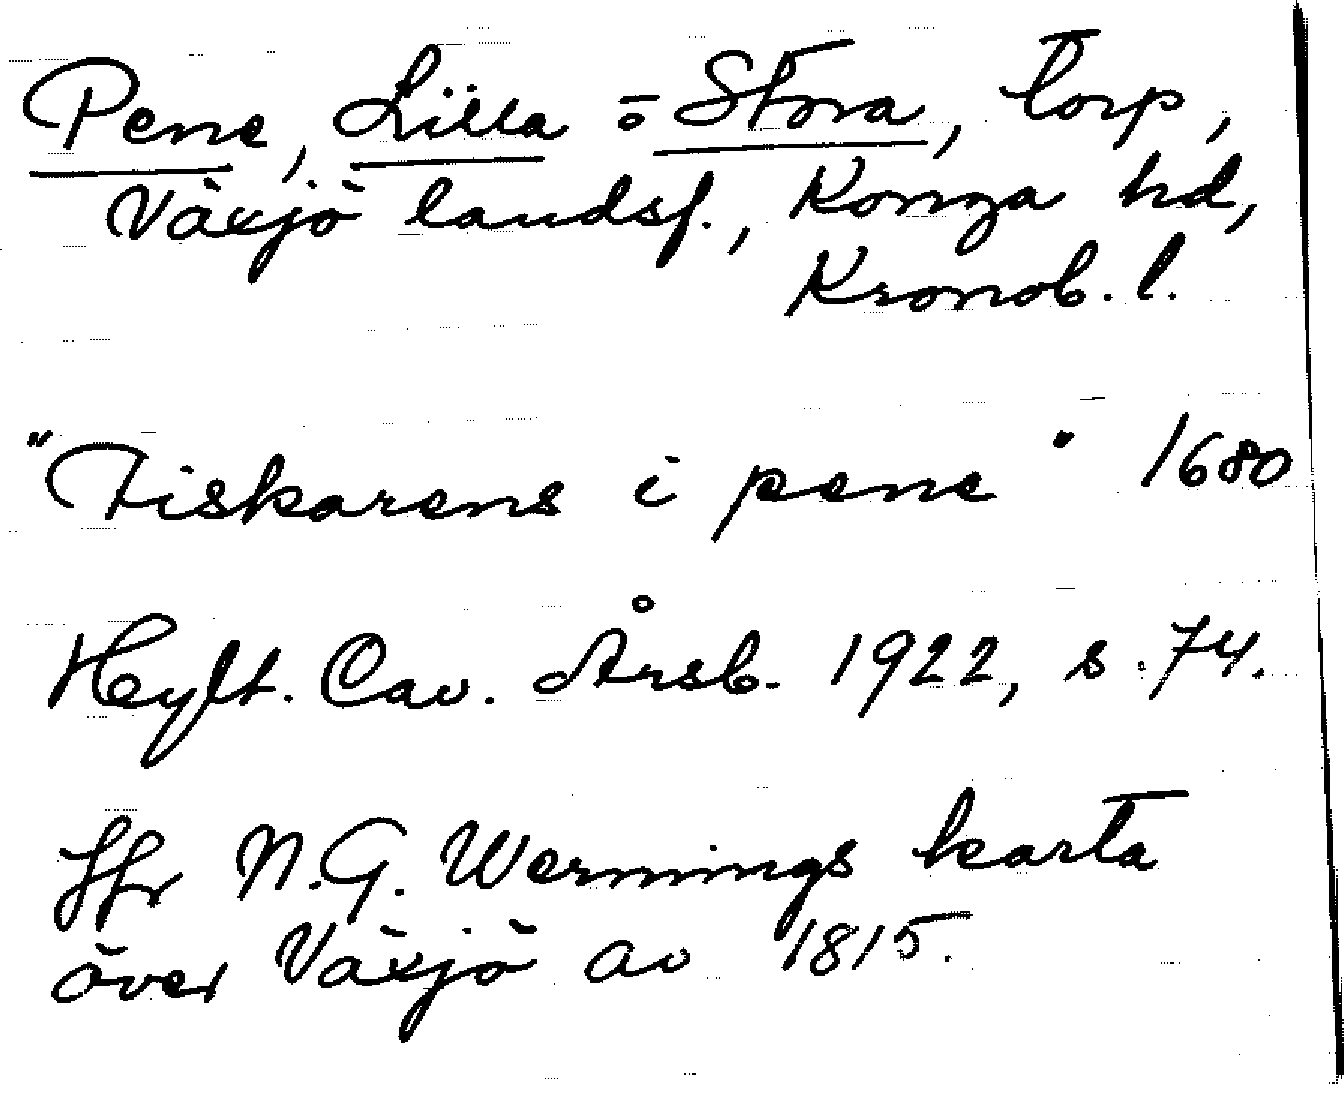 Pene, Lilla o Stora, torp,
Växjö landsf., Konga hd,
Kronob. l.
"Fiskarens i pene" 1680
Hylt. Cav. Årsb. 1922, s. 74.
Jfr N.G. Wernings karta
över Växjö av 1815.